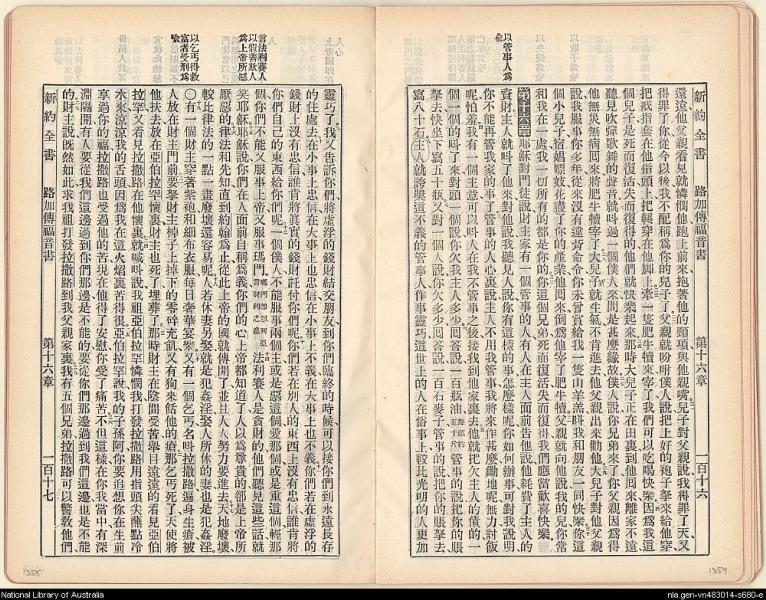 新約全書 路加傳福音書 第十六章 一百十六
還遠他父親看見就憐憫他跑上前來抱著他的頸項與他親嘴兒子對父親說我得罪了天又
得罪了你從今以後我不配稱爲你的兒子了父親就吩咐僕人說把上好的袍子拏來給他穿
把戒指套在他指頭上把鞋穿在他脚上牽一隻肥牛犢來宰了我們可以吃喝快樂因爲我這
個兒子是死而復活失而復得的他們就快樂起來那時大兒子正在田裏到他囘來離家不遠
聽見吹彈歌舞的聲音就叫過一個僕人來問是甚麼緣故僕人說你兄弟來了你父親因爲得
他無災無病囘來將肥牛犢宰了大兒子就生氣不肯進去他父親出來勸他大兒子對他父親
說我服事你多年從來沒有違背命令你未嘗賞給我一隻山羊羔叫我和朋友一同快樂你這
個小兒子宿娼嫖妓花盡了你的產業他囘來倒爲他宰了肥牛犢父親就向他說我的兒你常
和我在一處我一切所有的都是你的你這個兄弟死而復活失而復得我們應當歡喜快樂
以管事人爲喩
第十六章耶穌對門徒說有財主家有一個管事的人有人在主人面前告他說他耗費了主人的
資財主人就叫了他來對他說我聽見人說你有這樣的事怎麼樣呢你如何辦事可對我說明
你不能再管我家的事了管事的人心裏說主人不用我管事我將來作甚麼鋤地呢無力討飯
呢怕羞我有一個主意可以叫人在我不管事之後接我到他家裏去他就把欠主人債的一
個一個的叫了來對頭一個說你欠我主人多少囘答說一百瓶油管事的說把你的賬
拏去快坐下寫五十瓶又對一個人說你欠多少囘答說一百石麥子管事的說把你的賬拏去
寫八十石主人就誇獎這不義的管事人作事靈巧這世上的人在俗事上較比光明的人更加
靈巧了我又告訴你們將虛浮的錢財結交朋友到你們臨終的時候可以接你們到永遠長存
的住處去在小事上忠信在大事上也忠信在小事上不義在大事上也不義你們若在虛浮的
錢財上沒有忠信誰肯將眞實的錢財託付你們呢你們若在別人的東西上沒有忠信誰肯將
你們自己的東西給你們呢一個僕人不能服事兩個主或是惡這個愛那個或是重這個輕那
言法利賽人以假善欺人爲上帝所惡
個你們不能又服事上帝又服事瑪門法利賽人是貪財的他們聽見這些話就
笑耶穌耶穌說你們在人面前自稱爲義你們的心上帝都知道了人以爲尊貴的都是上帝所
厭惡的律法和先知直到約翰爲止從此上帝的國就傳開了並且人人努力要進去天地廢壞
較比律法的一點一畫廢壞還容易呢人若休妻另娶就是犯姦淫娶人所休的妻也是犯姦淫
以乞丐得救富者受刑爲喩
〇有一個財主穿著紫袍和細布衣服每日奢華宴樂又有一個乞丐名呌拉撒路遍身生瘡被
人放在財主門前要拏財主棹子上掉下的零碎充飢又有狗來餂他的瘡那乞丐死了天使將
他扶去放在亞伯拉罕懷裏財主也死了埋葬了那時財主在陰間受苦舉目遠遠的看見亞伯
拉罕又看見拉撒路在他懷裏就喊呌說我祖亞伯拉罕憐憫我打發拉撒路用指頭尖蘸點冷
水來涼涼我的舌頭因爲我在這火燄裏苦得很亞伯拉罕說我的子孫阿你要追想你在生前
享過你的福拉撒路也受過他的苦現在他得了安慰你受了痛苦不但這樣在你我當中有深
淵隔開有人要從我們這邊過到你們那邊是不能的要從你們那邊過到我們這邊也是不能
的財主說旣然如此求我祖打發拉撒路到我父親家裏我有五個兄弟拉撒路可以警教他們
新約全書 路加傳福音書 第十六章 一百十七
1355
1354
National Library of Australia
nla.gen-vn483014-s680-e